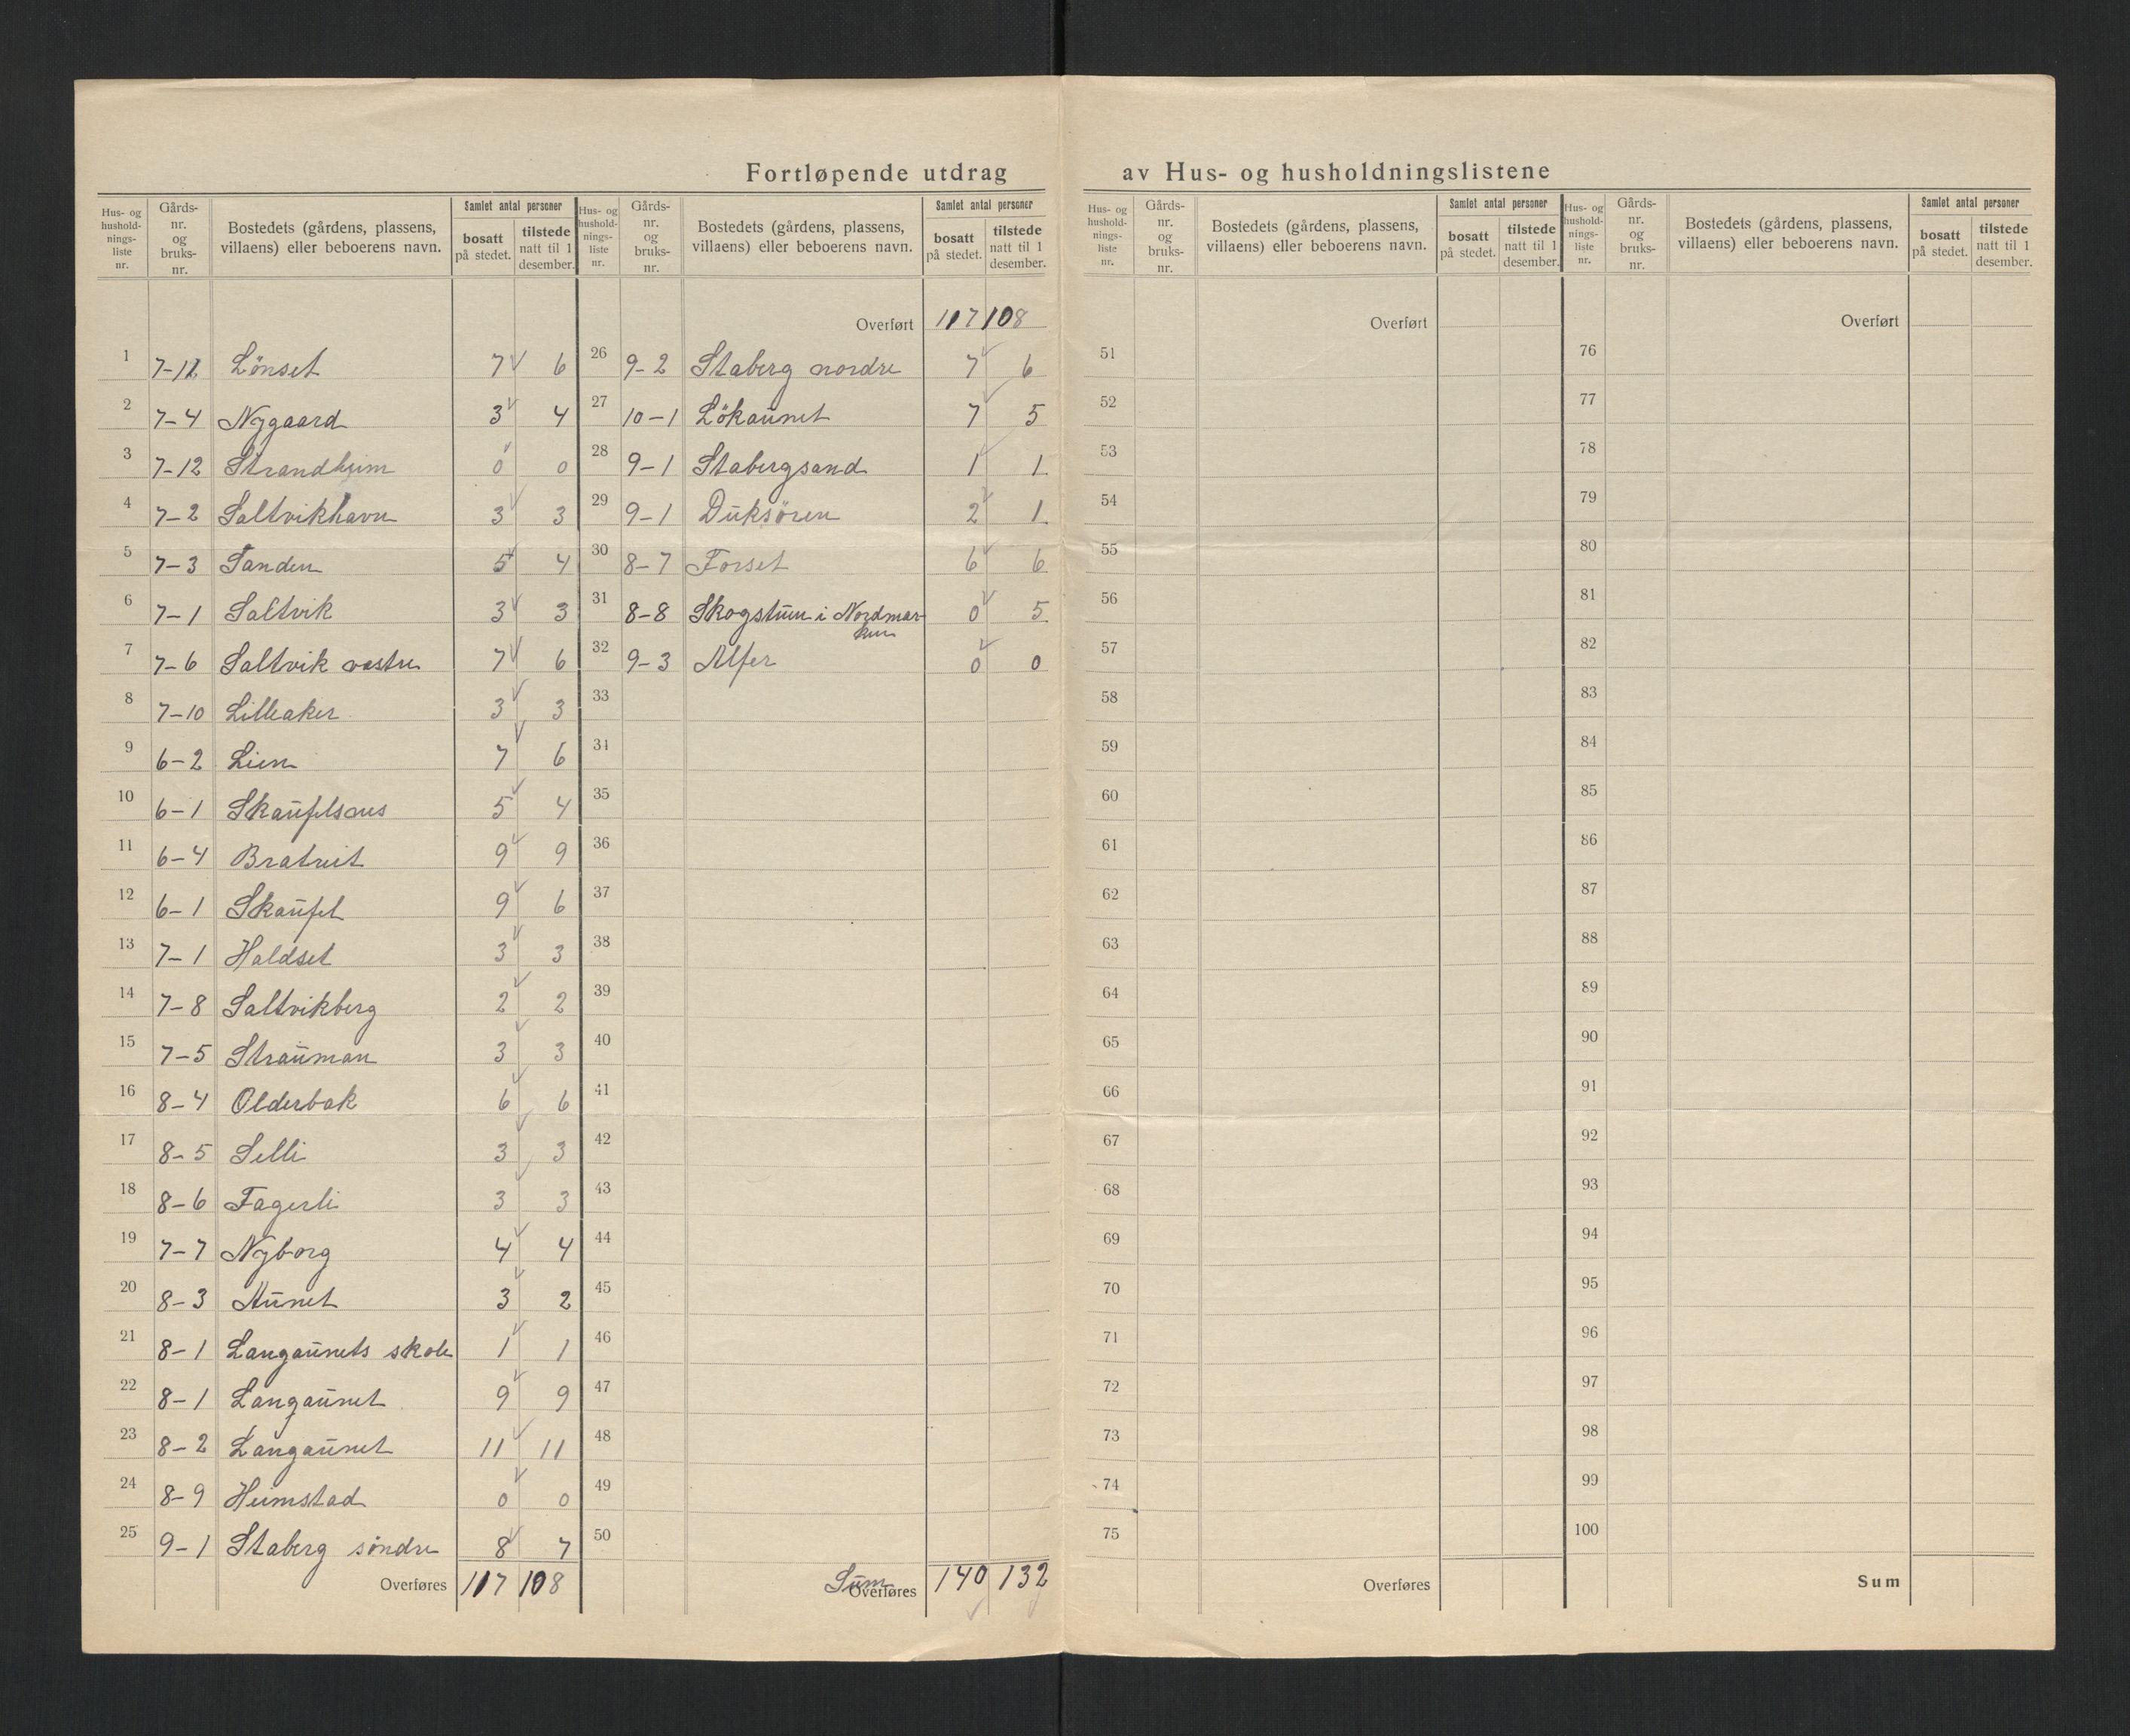 Fortløpende utdrag av Hus- og husholdningslistene
Hus- og hushold-nings-liste nr. Gårds-nr. og bruks-nr. Bostedets (gårdens, plassens, villaens) eller beboerens navn. Samlet antal personer bosatt på stedet. tilstede natt til 1 desember.
1 7-12 Lönset 7 6
2 7-4 Nygaard 3 4
3 7-12 Strandheim 0 0
4 7-2 Saltvikhavn 3 3
5 7-3 Tanden 5 4
6 7-1 Saltvik 3 3
7 7-6 Saltvik vestre 7 6
8 7-10 Lilleaker 3 3
9 6-2 Lien 7 6
10 6-1 Skaufelsaas 5 4
11 6-4 Bratreit 9 9
12 6-1 Skaufel 9 6
13 7-1 Haldset 3 3
14 7-8 Saltvikberg 2 2
15 7-5 Strauman 3 3
16 8-4 Olderbak 6 6
17 8-5 Selli 3 3
18 8-6 Fagerli 3 3
19 7-7 Nyborg 4 4
20 8-3 Aunet 3 2
21 8-1 Langaunets skole 1 1
22 8-1 Langaunet 9 9
23 8-2 Langaunet 11 11
24 8-9 Heimstad 0 0
25 9-1 Staberg söndre 8 7
Overføres 117 108
Hus- og hushold-nings-liste nr. Gårds-nr. og bruks-nr. Bostedets (gårdens, plassens, villaens) eller beboerens navn. Samlet antal personer bosatt på stedet. tilstede natt til 1 desember.
Overført 117 108
26 9-2 Staberg nordre 7 6
27 10-1 Lökaunet 7 5
28 9-1 Stabergsand 1 1
29 9-1 Duksören 2 1
30 8-7 Forset 6 6
31 8-8 Skogstun i Nordmar-
ken 0 5
32 9-3 Alfer 0 0
33
34
35
36
37
38
39
40
41
42
43
44
45
46
47
48
49
50
Sum Overføres 140 132
Hus- og hushold-nings-liste nr. Gårds-nr. og bruks-nr. Bostedets (gårdens, plassens, villaens) eller beboerens navn. Samlet antal personer bosatt på stedet. tilstede natt til 1 desember.
Overført
51
52
53
54
55
56
57
58
59
60
61
62
63
64
65
66
67
68
69
70
71
72
73
74
75
Overføres
Hus- og hushold-nings-liste nr. Gårds-nr. og bruks-nr. Bostedets (gårdens, plassens, villaens) eller beboerens navn. Samlet antal personer bosatt på stedet. tilstede natt til 1 desember.
Overført
76
77
78
79
80
81
82
83
84
85
86
87
88
89
90
91
92
93
94
95
96
97
98
99
100
Sum